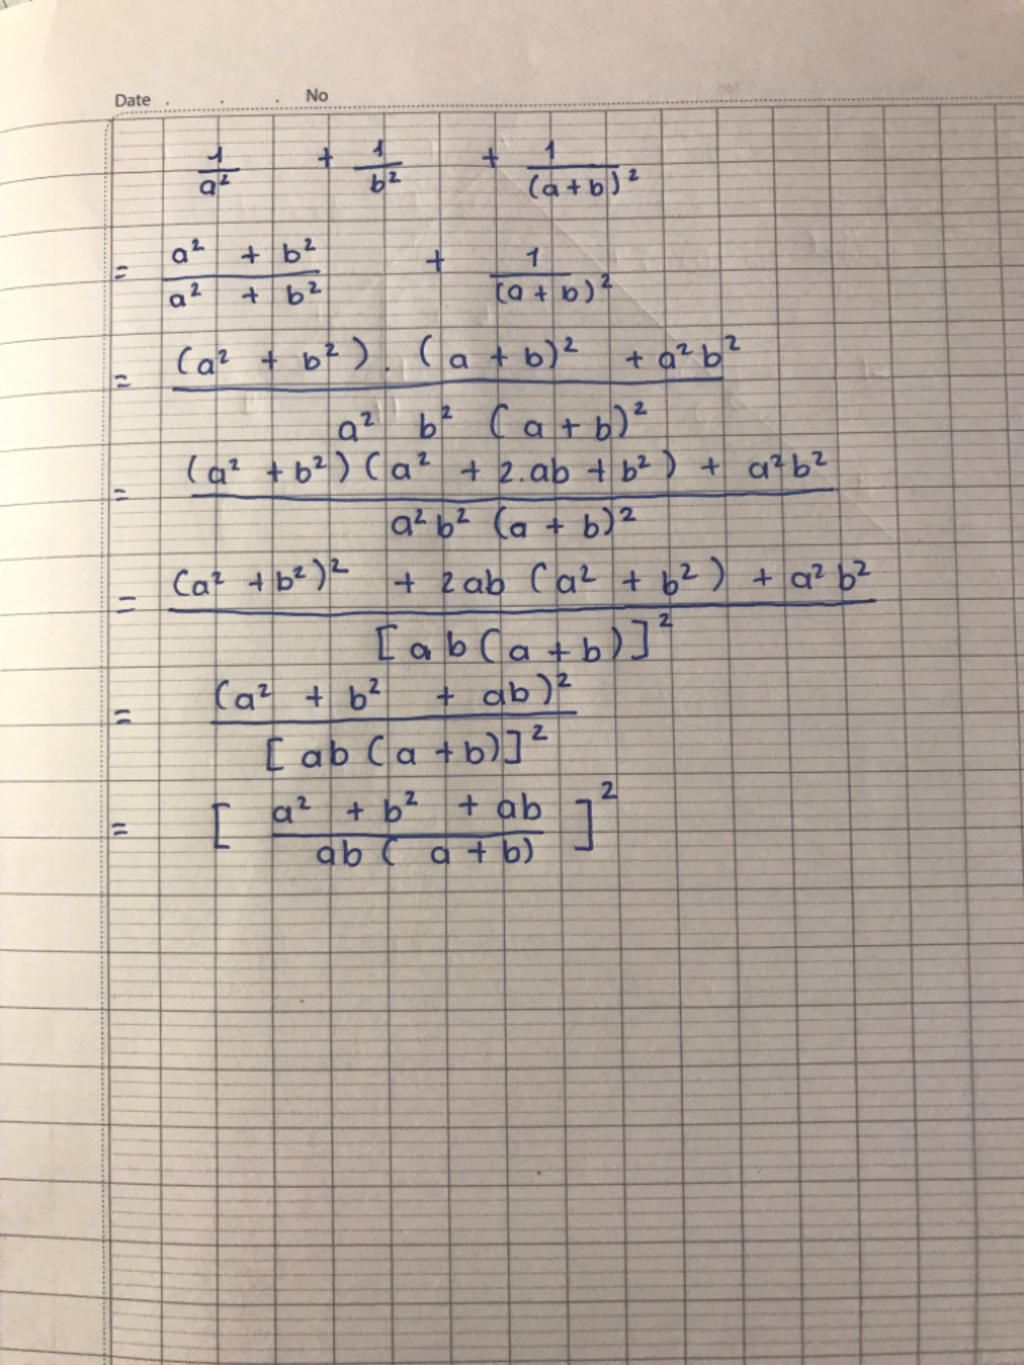 Date . . . No
1/a² + 1/b² + 1/(a+b)²
= (a² + b²)/(a² + b²) + 1/(a+b)²
= ((a² + b²).(a + b)² + a²b²)/(a² b² (a+b)²)
= ((a² + b²)(a² + 2.ab + b²) + a²b²)/(a²b² (a + b)²)
= ((a² + b²)² + 2ab (a² + b²) + a²b²)/([ab(a+b)]²)
= (a² + b² + ab)²/[ab(a+b)]²
= [(a² + b² + ab)/(ab(a+b))]²